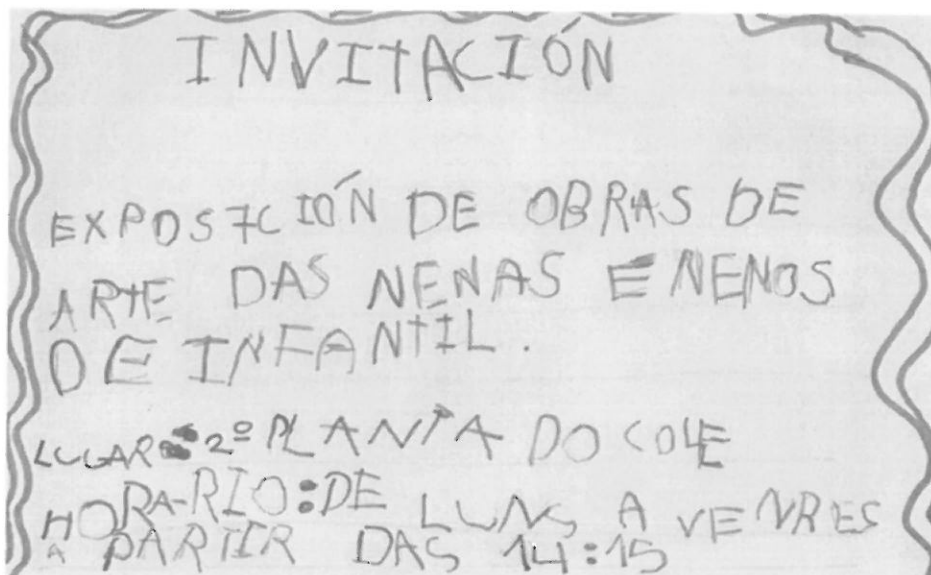 INVITACIÓN
EXPOSICIÓN DE OBRAS DE
ARTE DAS NENAS E NENOS
DE INFANTIL.
LUGAR: 2º PLANTA DO COLE
HORARIO: DE LUNS A VENRES
A PARTIR DAS 14:15